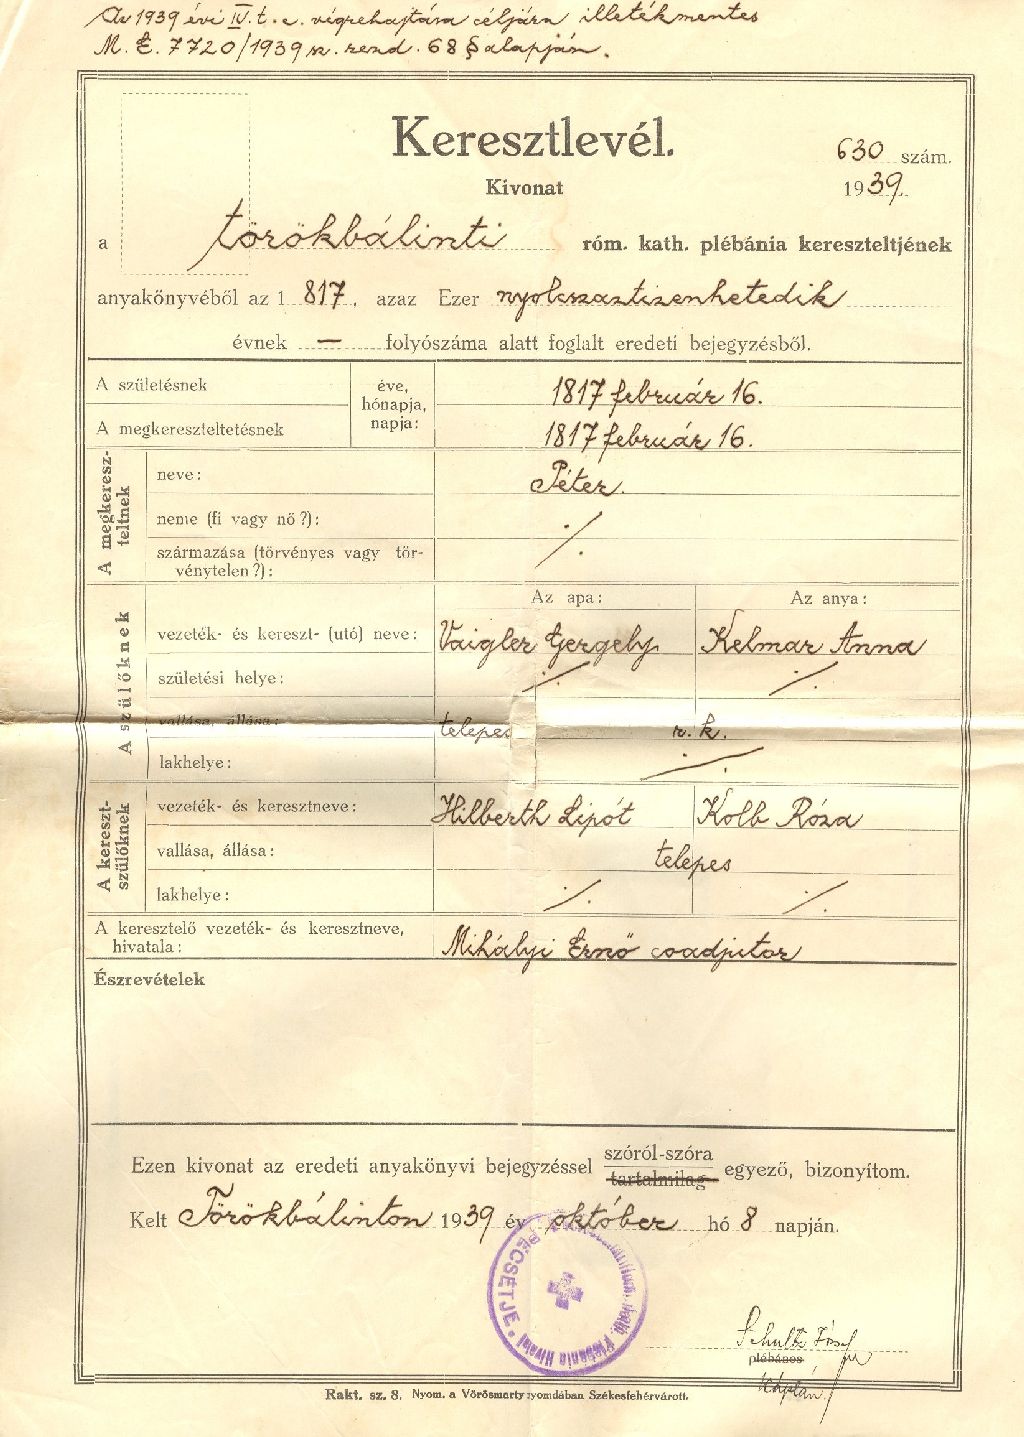 Az 1939 évi IV. t. c. végrehajtása céljára illetékmentes
M. E. 7720/1939 sz. rend. 68 § alapján.
Keresztlevél.
630 szám.
Kivonat
1939
a törökbálinti róm. kath. plébánia kereszteltjének
anyakönyvéből az 1817, azaz Ezer nyolcszáztizenhetedik
évnek — folyószáma alatt foglalt eredeti bejegyzésből.
A születésnek éve, hónapja, napja: 1817 február 16.
A megkereszteltetésnek 1817 február 16.
A megkereszteltnek
neve: Péter.
neme (fi vagy nő?): ./.
származása (törvényes vagy törvénytelen?):
A szülőknek
Az apa: Az anya:
vezeték- és kereszt- (utó) neve: Vaigler Gergely. Kelmar Anna
születési helye: ./. ./.
vallása, állása: telepes r. k.
lakhelye: ./.
A keresztszülőknek
vezeték- és keresztneve: Hilberth Lipót Kolb Róza
vallása, állása: telepes
lakhelye: ./. ./.
A keresztelő vezeték- és keresztneve, hivatala: Mihályi Ernő coadjutor
Észrevételek
Ezen kivonat az eredeti anyakönyvi bejegyzéssel szóról-szóra tartalmilag egyező, bizonyítom.
Kelt Törökbálinton 1939 év október hó 8 napján.
Plébánia Hivatal PECSÉTJE
Schultz József
plébános
káplán
Rakt. sz. 8. Nyom. a Vörösmarty nyomdában Székesfehérvárott.